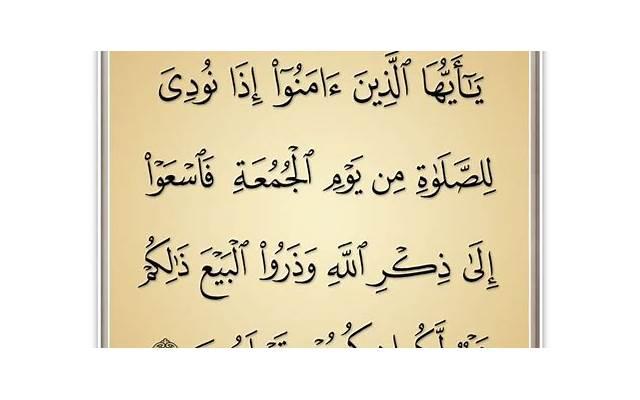 يَٰٓأَيُّهَا ٱلَّذِينَ ءَامَنُوٓا۟ إِذَا نُودِىَ
لِلصَّلَوٰةِ مِن يَوْمِ ٱلْجُمُعَةِ فَٱسْعَوْا۟
إِلَىٰ ذِكْرِ ٱللَّهِ وَذَرُوا۟ ٱلْبَيْعَ ذَٰلِكُمْ